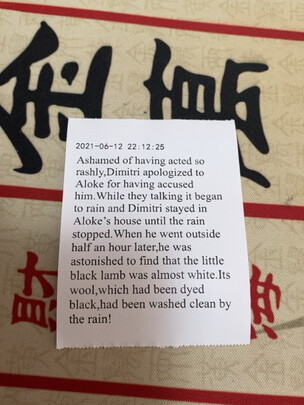 2021-06-12 22:12:25
Ashamed of having acted so
rashly,Dimitri apologized to
Aloke for having accused
him.While they talking it began
to rain and Dimitri stayed in
Aloke's house until the rain
stopped.When he went outside
half an hour later,he was
astonished to find that the little
black lamb was almost white.Its
wool,which had been dyed
black,had been washed clean by
the rain!
財